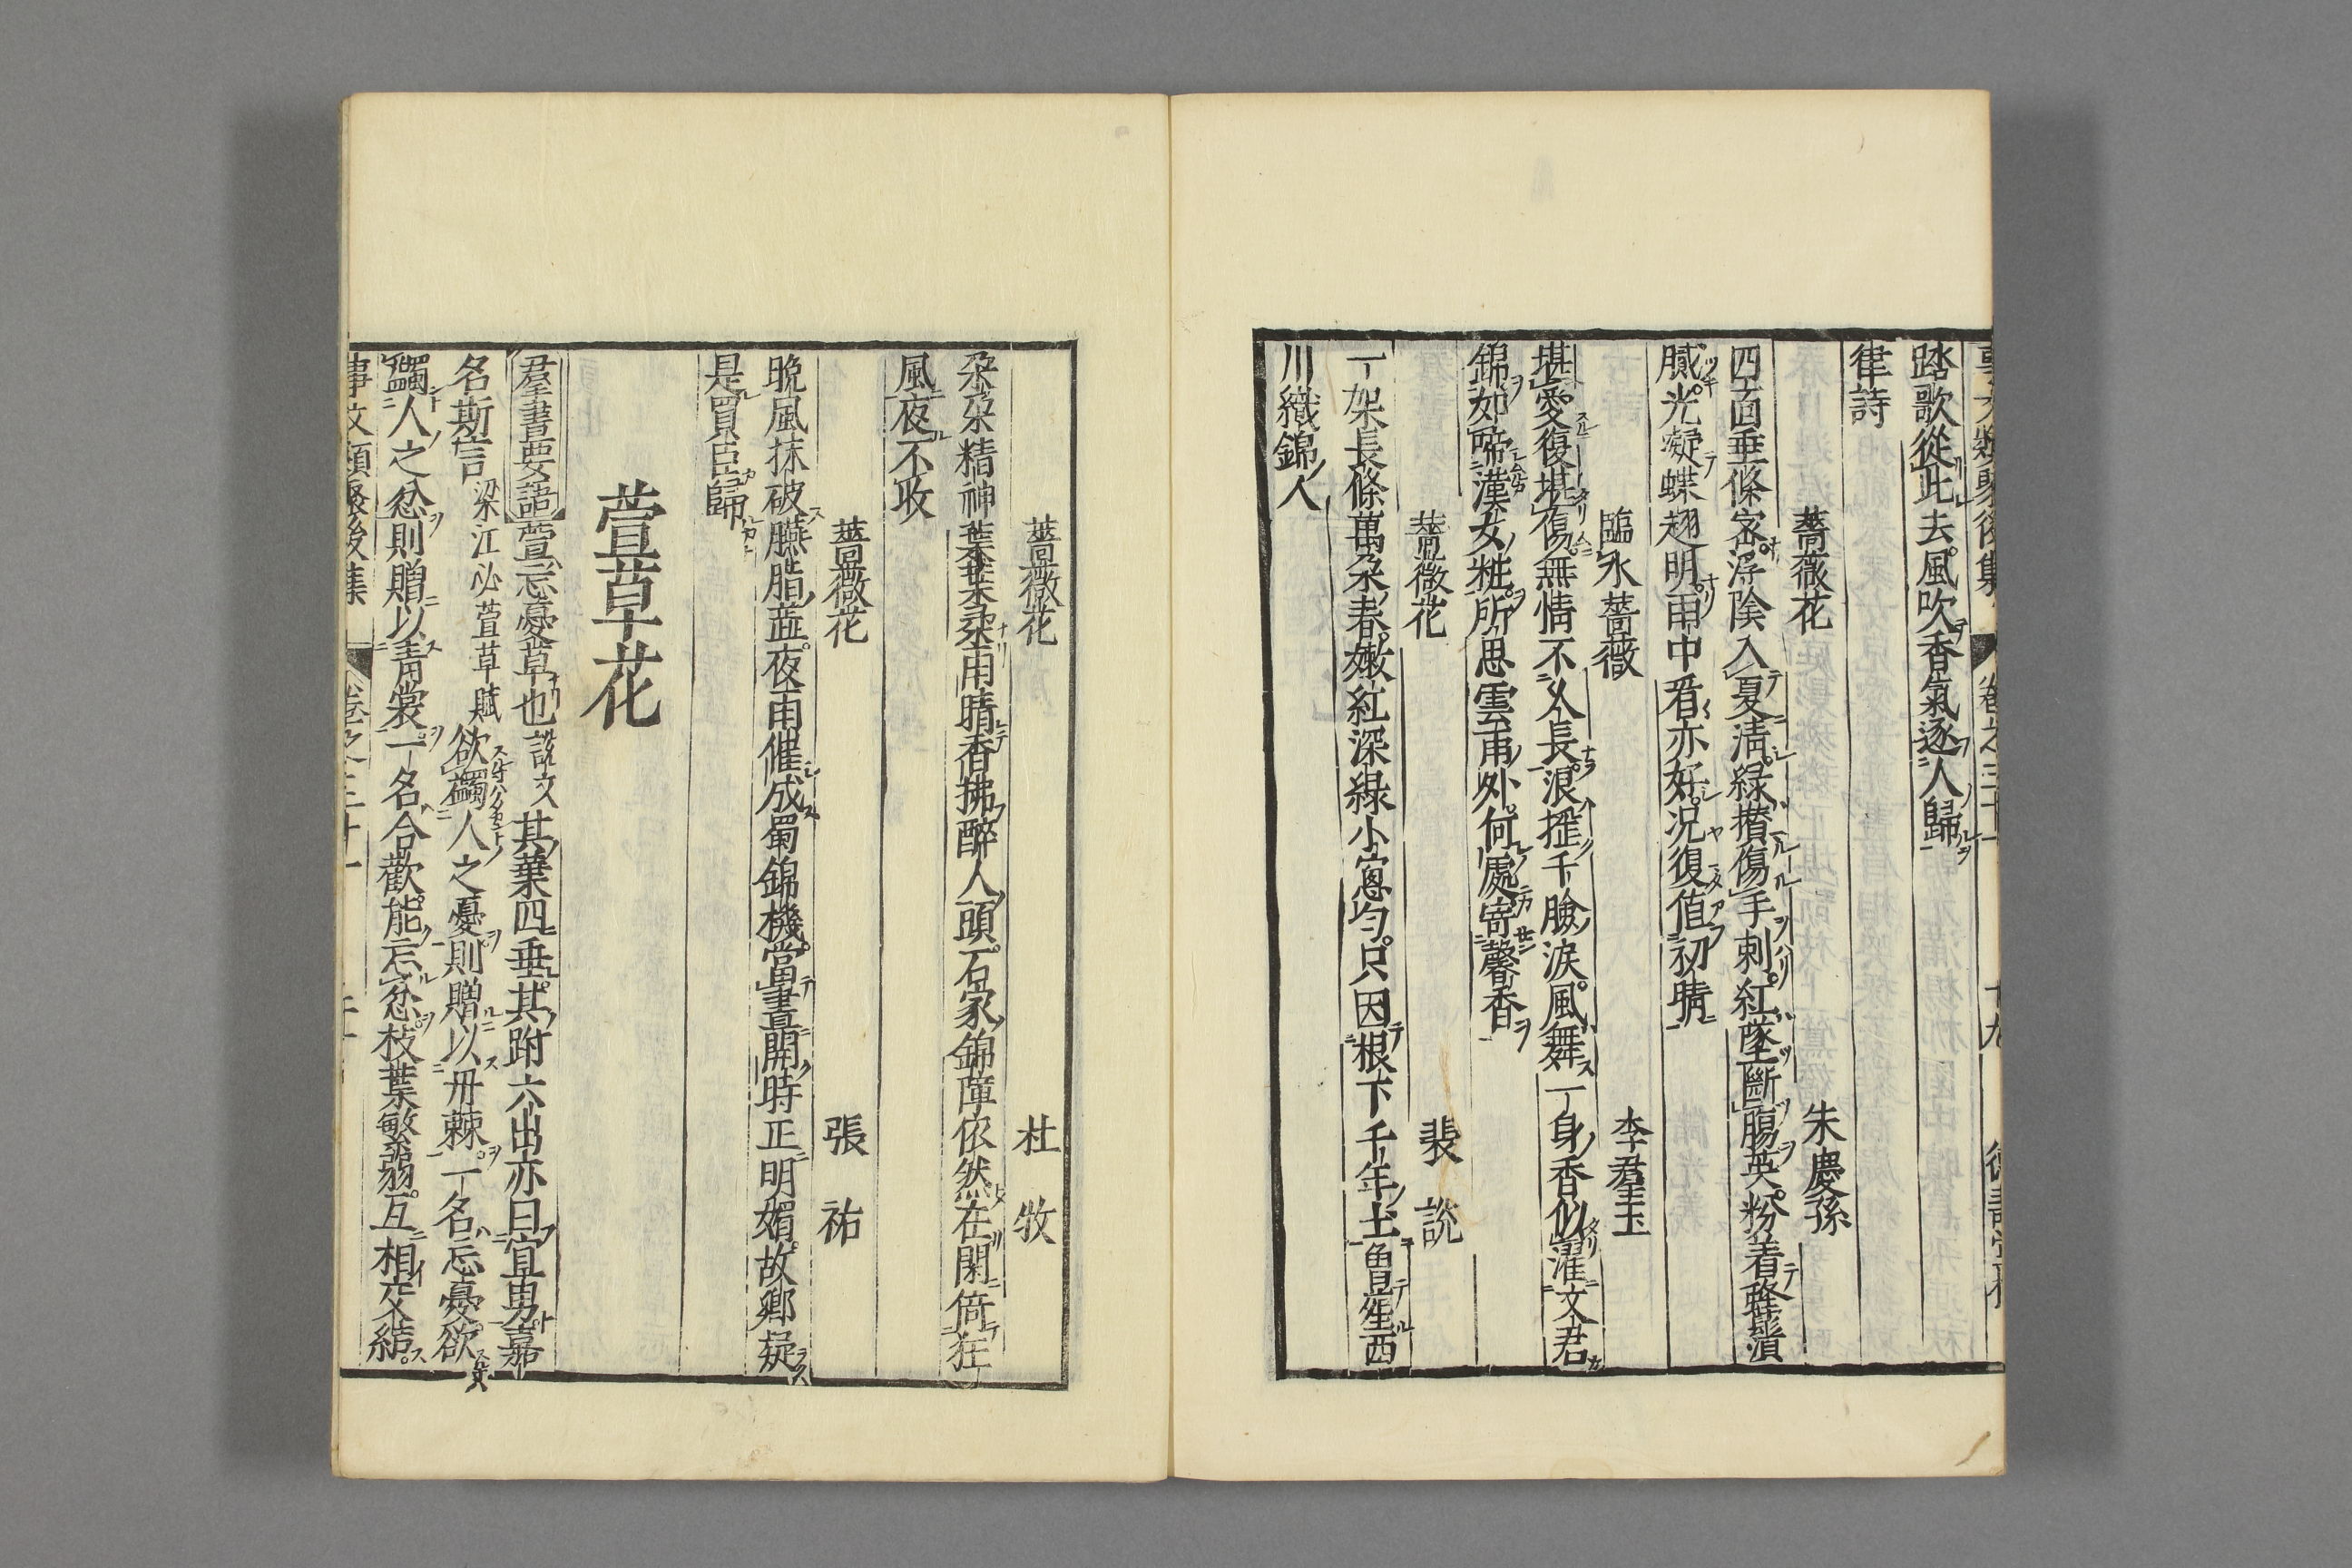 踏歌從此去風吹香氣逐人歸
律詩
薔薇花 朱慶孫
四面垂條密浮陰入夏淸綠攢傷手刺紅墜斷腸英粉着蜂鬚
膩光凝蝶翅明雨中看亦好況復值初晴
臨水薔薇 李羣玉
堪愛復堪傷無情不久長浪搖千臉淚風舞一身香似濯文君
錦如啼漢女粧所思雲雨外何處寄馨香
薔薇花 裴說
一架長條萬朶春嫩紅深綠小窻匀只因根下千年土曾葬西
川織錦人
薔薇花 杜牧
朶朶精神葉葉柔雨晴香拂醉人頭石家錦障依然在閑倚狂
風夜不收
薔薇花 張祐
晚風抹破臙脂蘂夜雨催成蜀錦機當晝開時正明媚故鄉疑
是買臣歸
萱草花
羣書要語 萱忘憂草也 說文 其葉四垂其跗六出亦曰宜男嘉
名斯言 梁江必萱草賦 欲蠲人之憂則贈以丹棘一名忘憂欲
蠲人之忿則贈以靑裳一名合歡能忘忿枝葉敏弱互相交結
事文類聚後集 卷之三十一